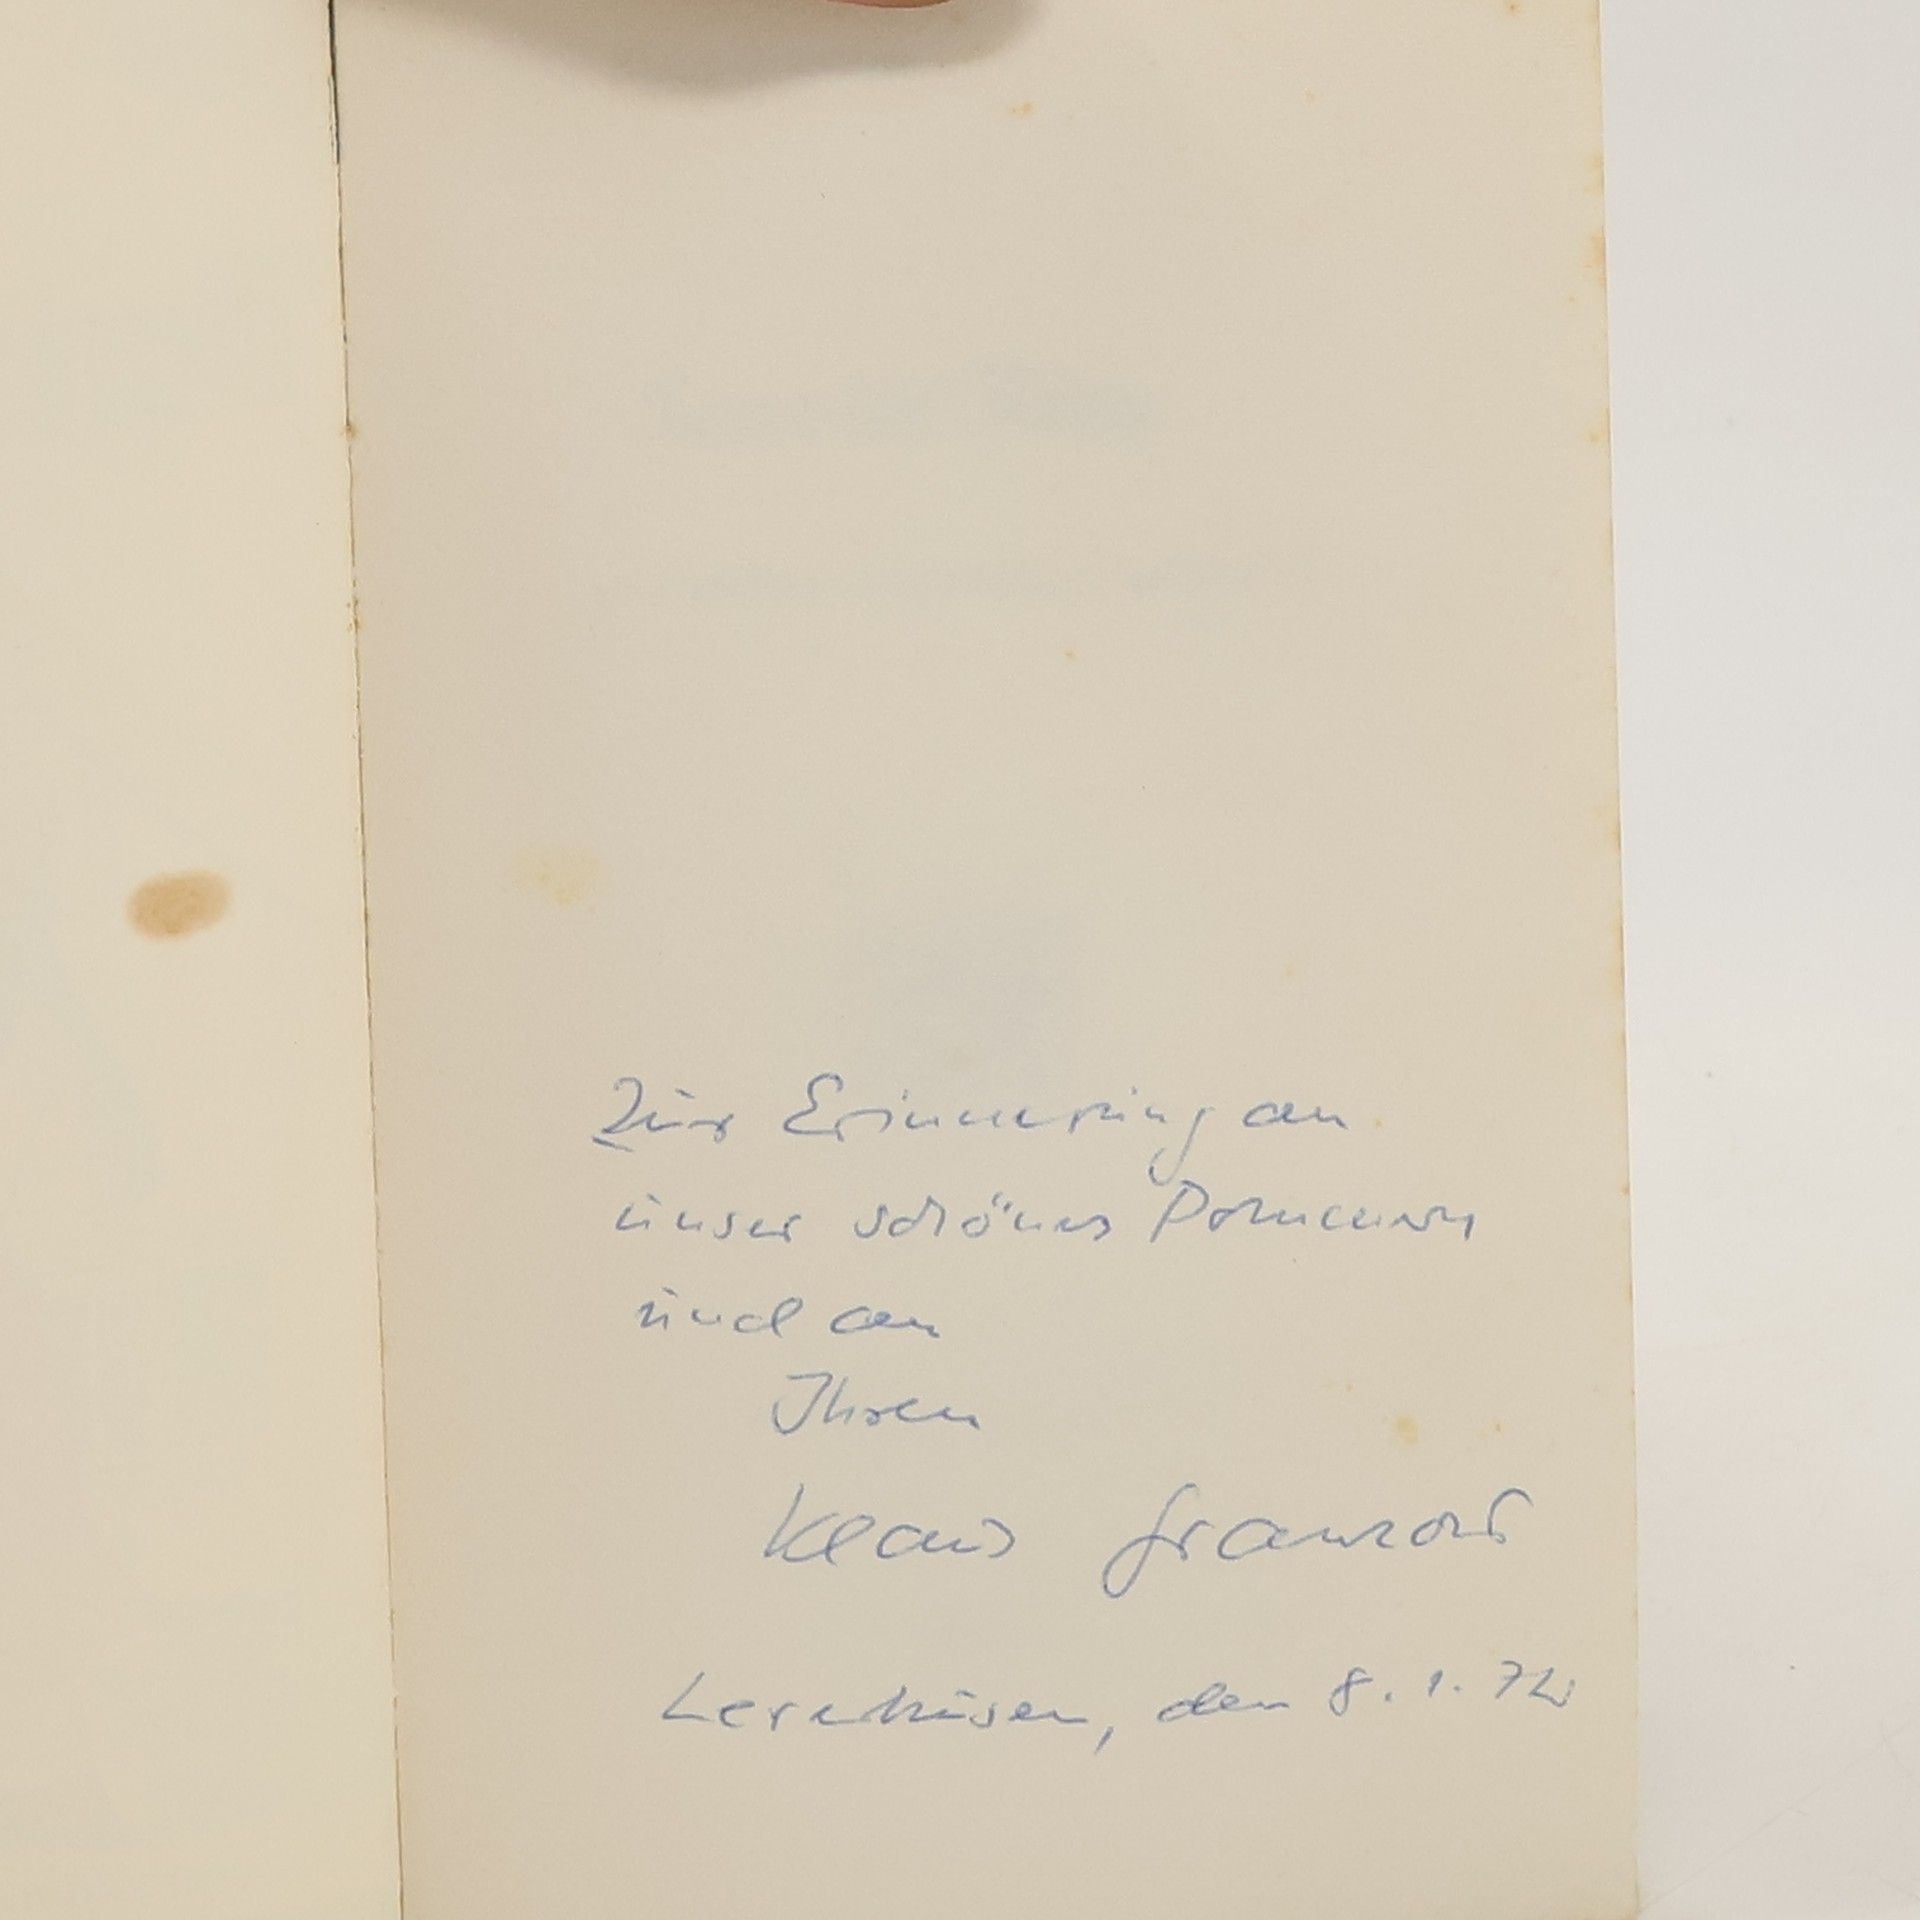 Zur Erinnerung an
unser schönes Pommern
und an
Ihren
Klaus Granzow
den 8.1.72